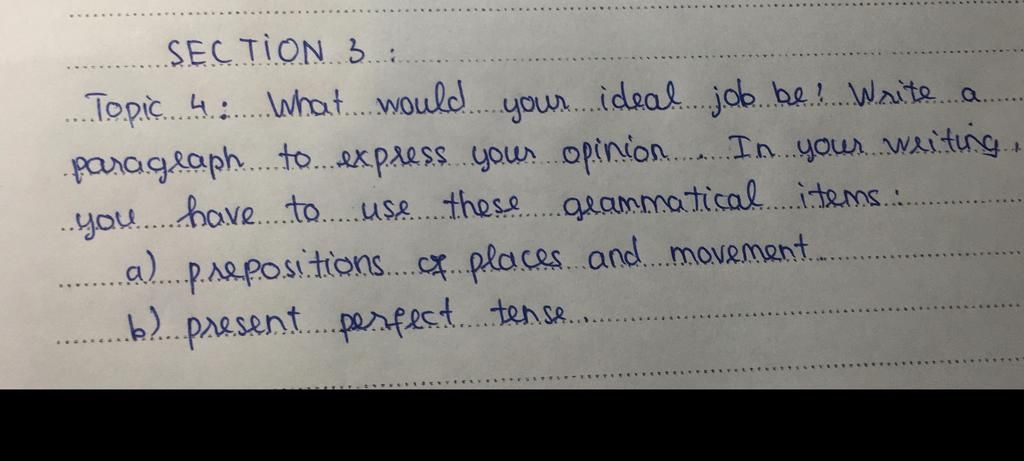 SECTION 3 :
Topic 4 : What would your ideal job be? Write a
paragraph to express your opinion . In your writing,
you have to use these grammatical items :
a) prepositions of places and movement
b) present perfect tense